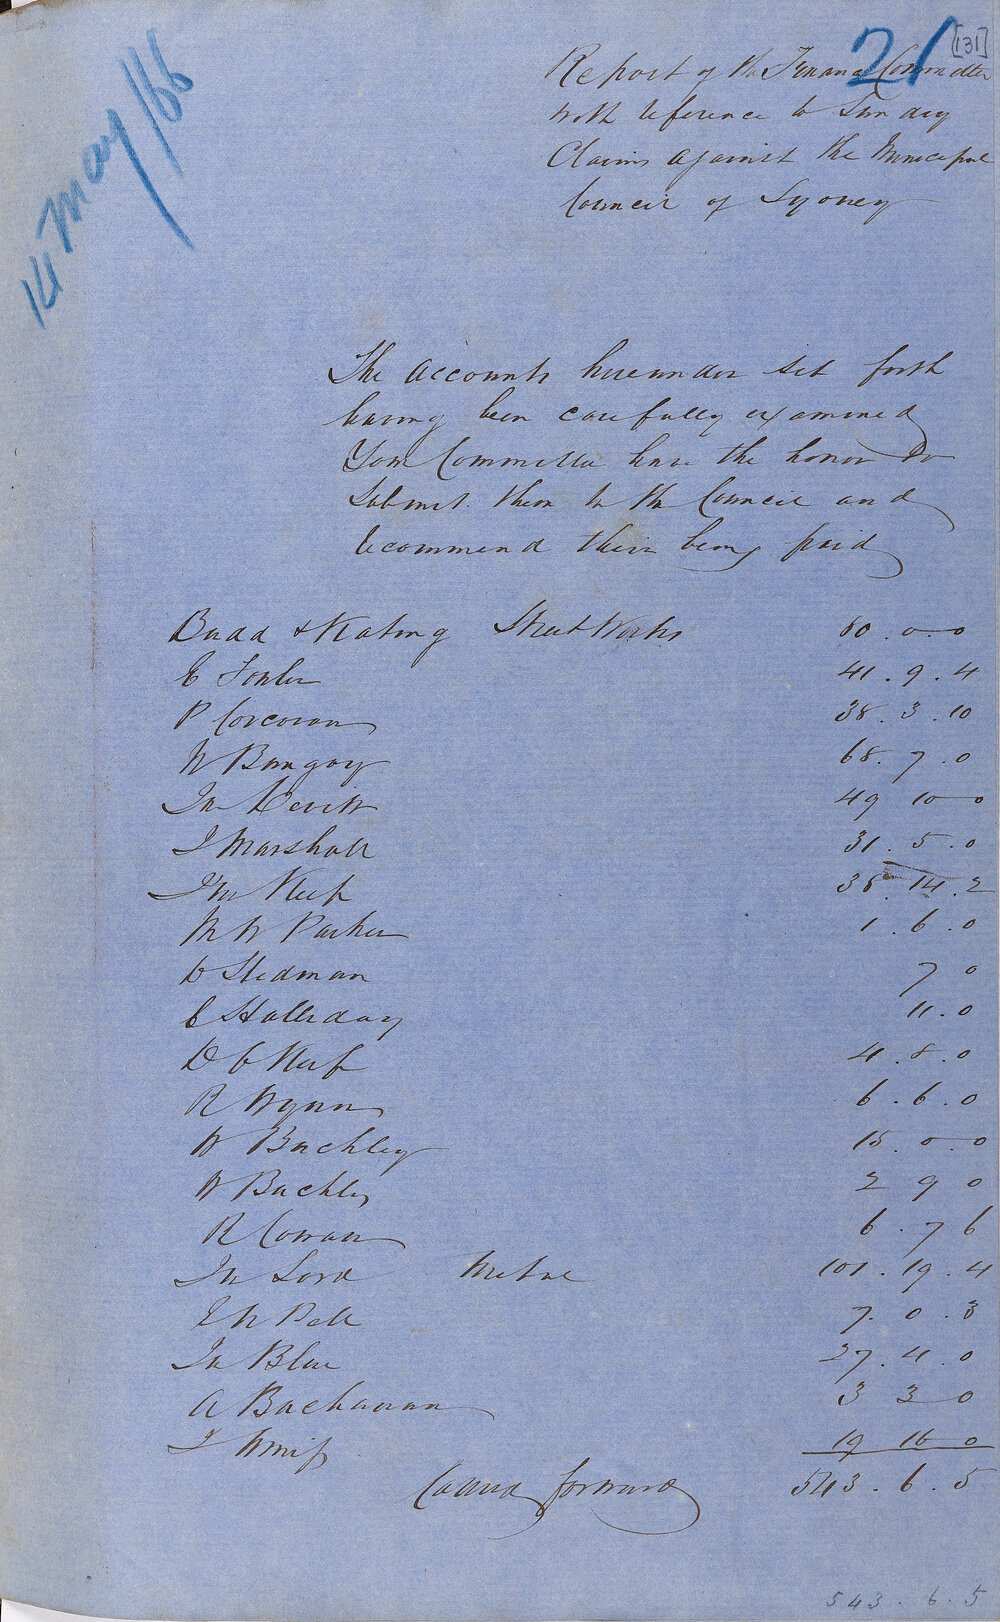 21 [131]
14 May /66
Report of the Finance Committee
with reference to Sundry
Claims against the Municipal
Council of Sydney
The accounts hereunder set forth
having been carefully examined
Your Committee have the honor to
Submit them to the Council and
recommend their being paid
Budd & Keating Street Works 80 . 0 . 0
E Fowler 41 . 9 . 4
P Corcoran 38 . 3 . 10
W Bungay 68 . 7 . 0
Jn Devitt 49 10 0
J Marshall 31 . 5 . 0
Jn Keep 38 . 14 . 2
M W Parker 1 . 6 . 0
D Stedman 7 0
E Halliday 11 . 0
D C Keep 4 . 8 . 0
R Wynn 6 . 6 . 0
W Buchley 15 0 0
W Buchley 2 9 0
R Cowan 6 . 7 6
Jn Lord 101 . 19 . 4
E W Pell 7 . 0 . 3
Jn Blue 27 . 4 . 0
A Buchanan 3 3 0
J 19 16 0
Carried forward 543 . 6 . 5
543 . 6 . 5